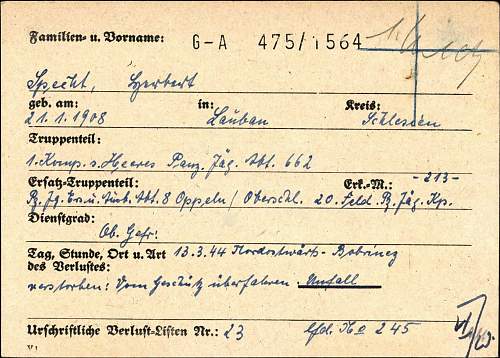 Familien- u. Vorname: G-A 475/1564
Specht, Herbert
geb. am: in: Kreis:
21.1.1908 Lauban Schlesien
Truppenteil:
1. Komp. s. Heeres Panz. Jäg. Abt. 662
Ersatz-Truppenteil: Erk.-M.: -213-
Pz. Jg. Ers. u. Ausb. Abt. 8 Oppeln/Oberschl. 20. Feld Pz. Jäg. Kp.
Dienstgrad:
Ob. Gefr.
Tag, Stunde, Ort u. Art 13.3.44 Nordostwärts Bobrinez
des Verlustes:
verstorben: Vom Geschütz überfahren. Unfall
Urschriftliche Verlust-Listen Nr.: 23 lfd. No 245
V1